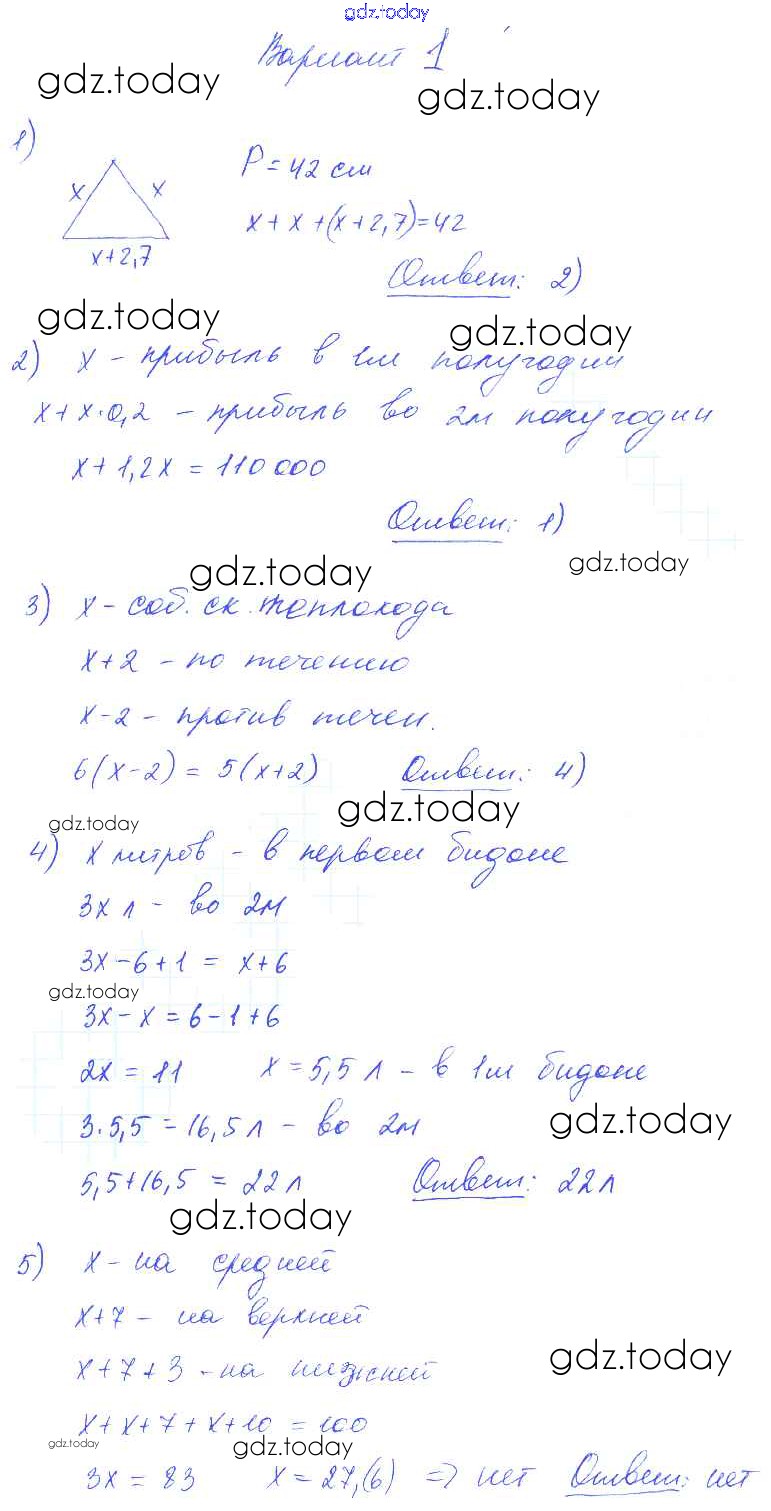 gdz.today
Вариант 1
gdz.today
gdz.today
1)
x x
x+2,7
P = 42 см
x + x + (x+2,7) = 42
Ответ: 2)
gdz.today
gdz.today
2) x - прибыль в 1м полугодии
x + x·0,2 - прибыль во 2м полугодии
x + 1,2x = 110 000
Ответ: 1)
gdz.today
gdz.today
3) x - соб. ск. теплохода
x+2 - по течению
x-2 - против течен.
6(x-2) = 5(x+2) Ответ: 4)
gdz.today
gdz.today
4) x литров - в первом бидоне
3x л - во 2м
3x - 6 + 1 = x + 6
gdz.today
3x - x = 6 - 1 + 6
2x = 11 x = 5,5 л - в 1м бидоне
3·5,5 = 16,5 л - во 2м
gdz.today
5,5 + 16,5 = 22 л Ответ: 22 л
gdz.today
5) x - на средней
x+7 - на верхней
x+7+3 - на нижней
gdz.today
x + x + 7 + x + 10 = 100
gdz.today
gdz.today
3x = 83 x = 27,(6) => нет Ответ: нет